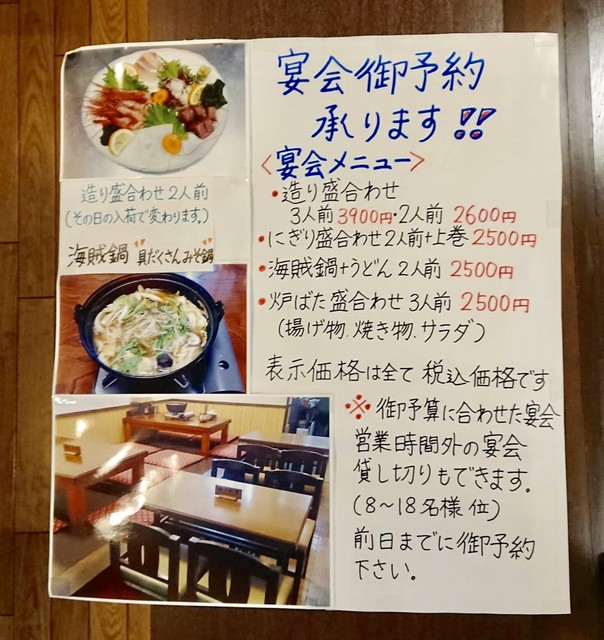 宴会御予約
承ります!!
<宴会メニュー>
・造り盛合わせ
3人前3900円・2人前 2600円
・にぎり盛合わせ2人前+上巻2500円
・海賊鍋+うどん2人前 2500円
・炉ばた盛合わせ3人前 2500円
(揚げ物、焼き物、サラダ)
表示価格は全て 税込価格です
※御予算に合わせた宴会
営業時間外の宴会
貸し切りもできます。
(8〜18名様位)
前日までに御予約
下さい。
造り盛合わせ2人前
(その日の入荷で変わります。)
海賊鍋 "具だくさんみそ鍋"